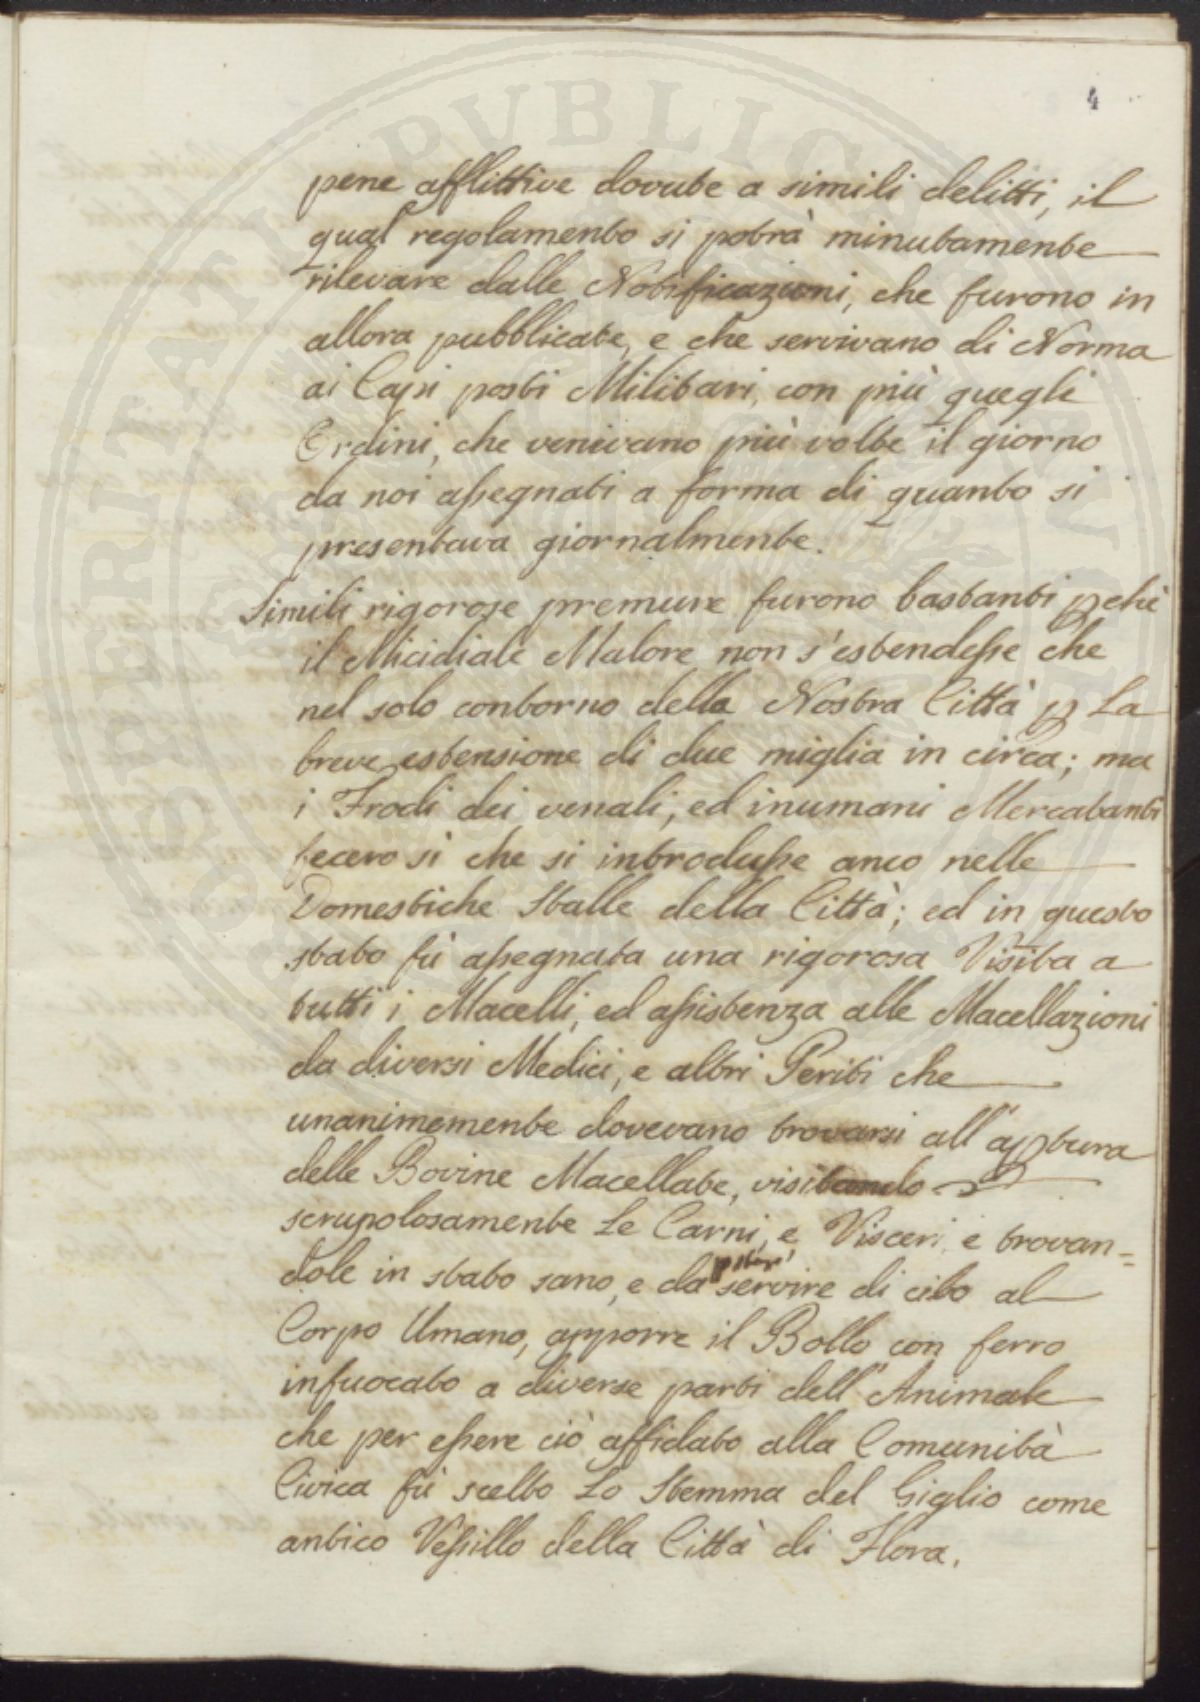 4
pene afflittive dovute a simili delitti, il
qual regolamento si potrà minutamente
rilevare dalle Notificazioni, che furono in
allora pubblicate, e che servivano di Norma
ai Capi posti Militari, con più quegli
Ordini, che venivano più volte il giorno
da noi assegnati a forma di quanto si
presentava giornalmente.
Simili rigorose premure furono bastanti pchè
il Micidiale Malore non s'estendesse che
nel solo contorno della Nostra Città p La
breve estensione di due miglia in circa; ma
i Frodi dei venali, ed inumani Mercatanti
fecero sì che si introdusse anco nelle
Domestiche Stalle della Città; ed in questo
stato fù assegnata una rigorosa Visita a
tutti i Macelli, ed assistenza alle Macellazioni
da diversi Medici, e altri Periti che
unanimemente dovevano trovarsi all'aptura
delle Bovine Macellate, visitando
scrupolosamente Le Carni, e Visceri, e trovan=
dole in stato sano, e da poter servire di cibo al
Corpo Umano, apporre il Bollo con ferro
infuocato a diverse parti dell'Animale
che per essere ciò affidato alla Comunità
Civica fù scelto Lo Stemma del Giglio come
antico Vessillo della Città di Flora.
PROSPERITATI PUBLICAE AUGENDAE